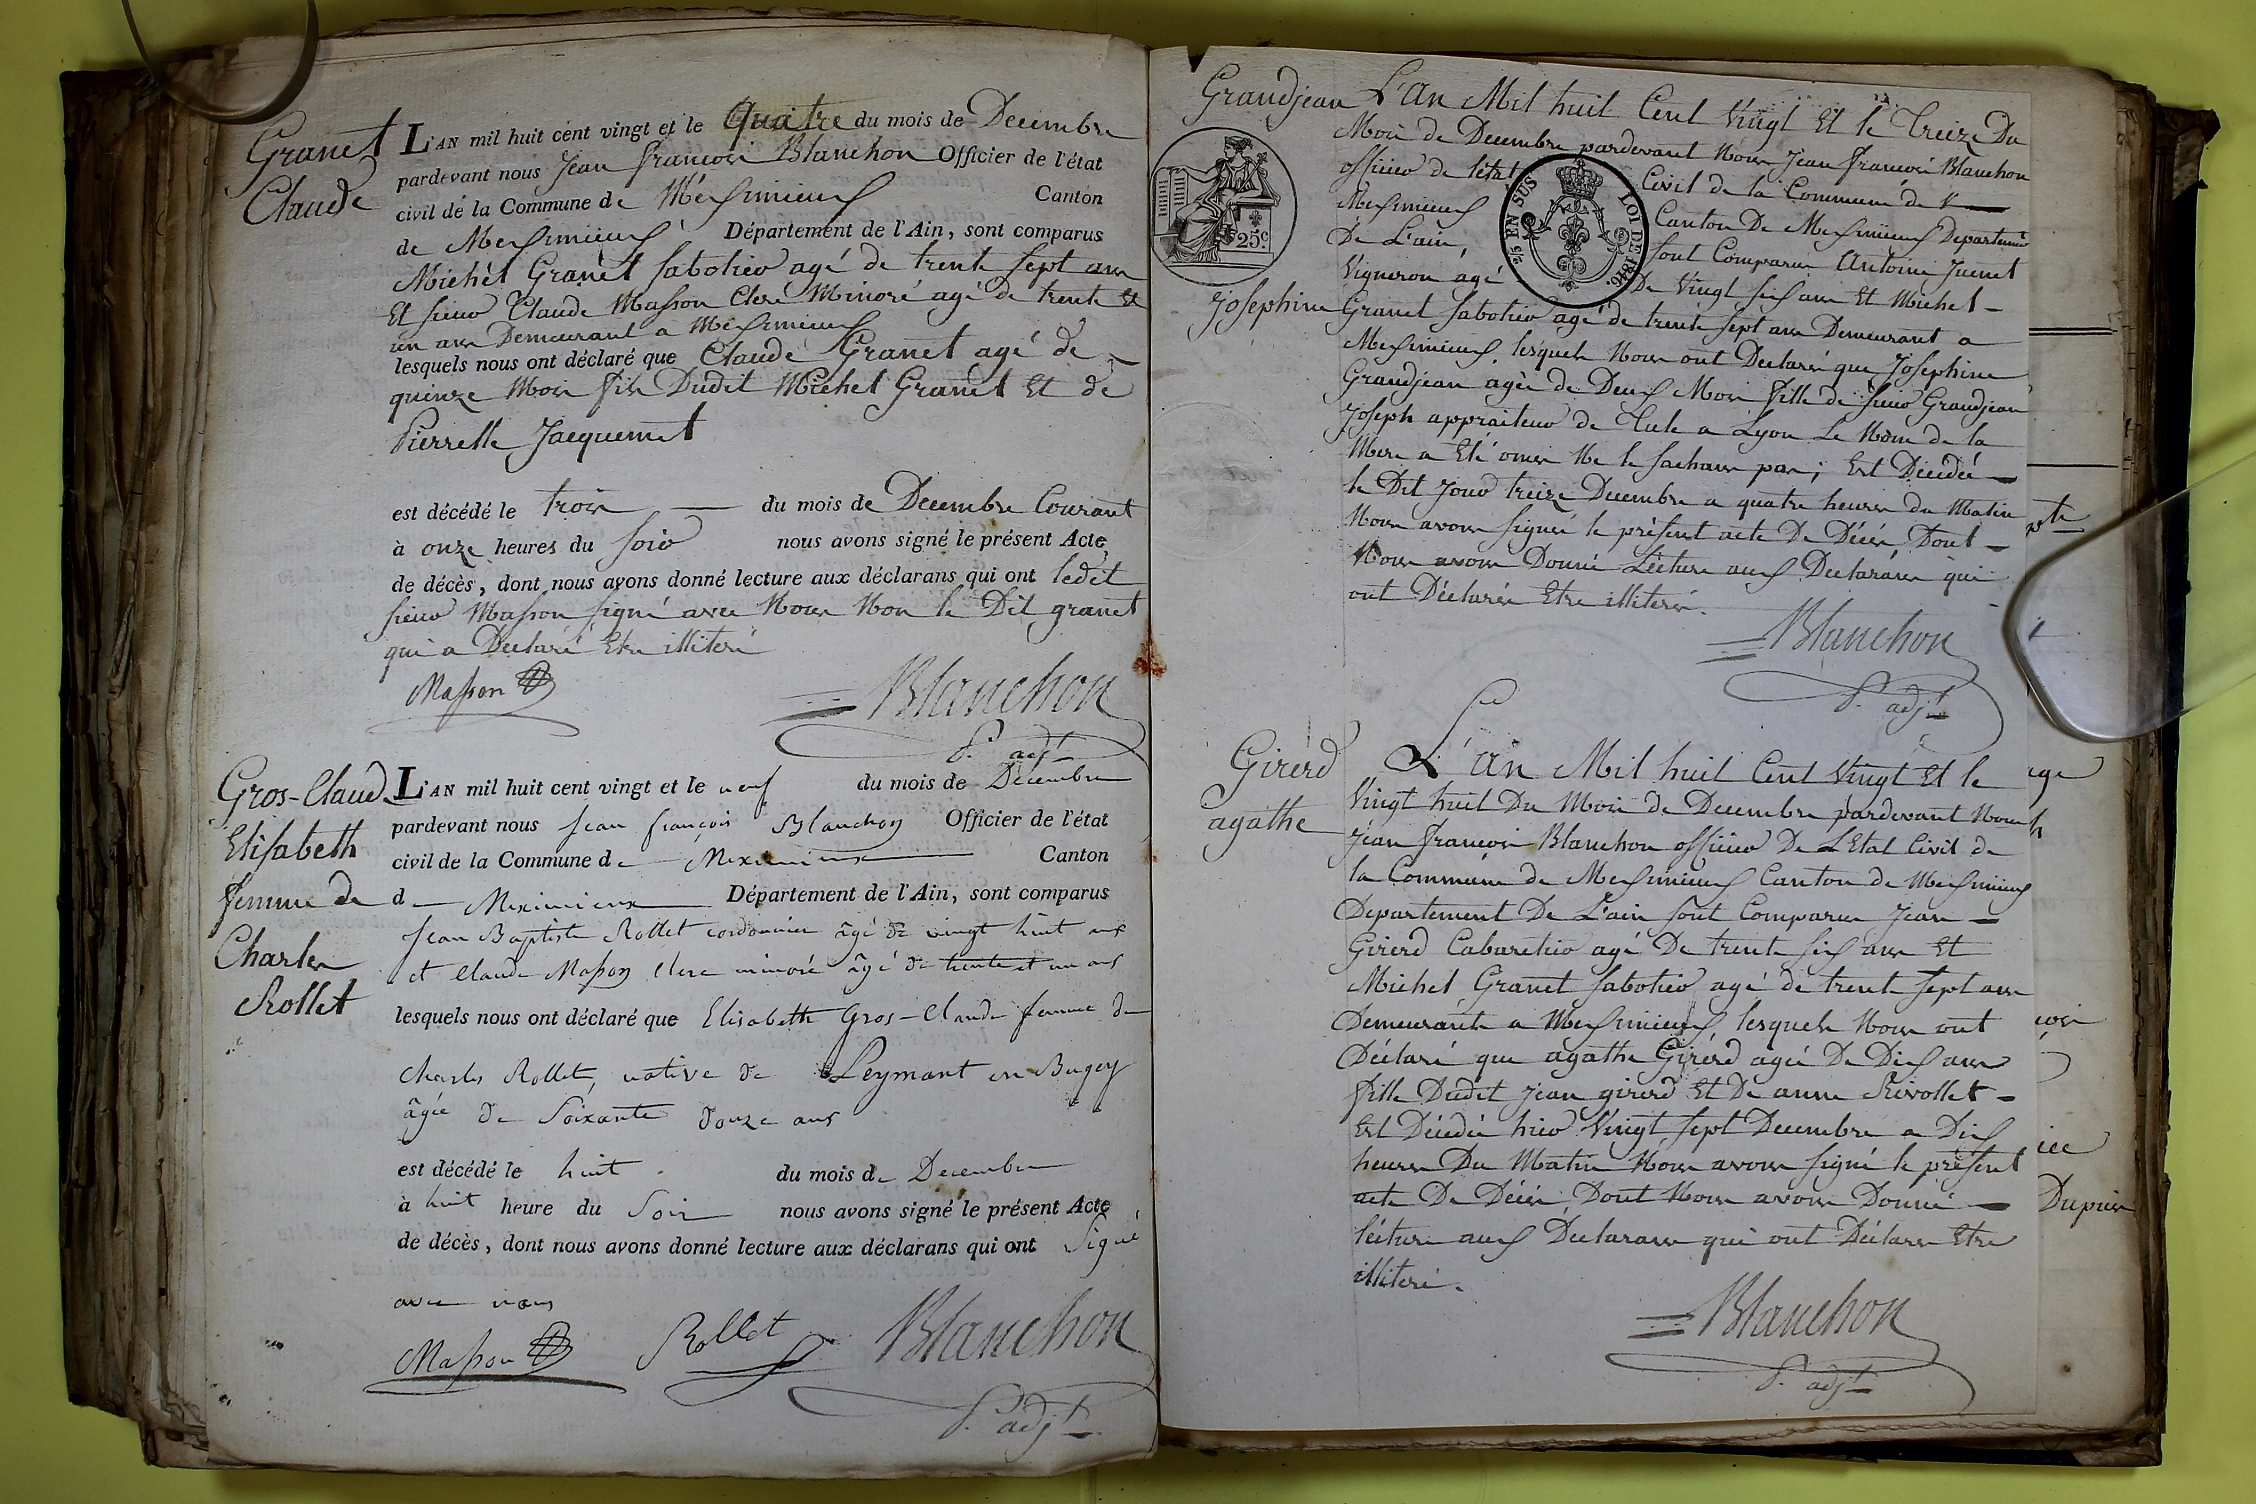 Granet
Claude
L'AN mil huit cent vingt et le Quatre du mois de Decembre
pardevant nous Jean francois Blanchon Officier de l'état
civil de la Commune de Meximieux Canton
de Meximieux Département de l'Ain, sont comparus
Michel Granet Sabotier agé de trente sept ans
Et sieur Claude Masson Clerc Minoré agé de trente Et
un ans Demeurant a Meximieux
lesquels nous ont déclaré que Claude Granet agé de
quinze Mois fils Dudit Michel Granet Et de
Pierrette Jacquemet
est décédé le trois du mois de Decembre Courant
à onze heures du soir nous avons signé le présent Acte
de décès, dont nous avons donné lecture aux déclarans qui ont ledit
sieur Masson signé avec Nous Non le Dit granet
qui a Declaré Etre illiteré
Masson
Blanchon
P. adjt
Gros-Claude
Elisabeth
femme de
Charles
Rollet
L'AN mil huit cent vingt et le neuf du mois de Décembre
pardevant nous Jean françois Blanchon Officier de l'état
civil de la Commune de Meximieux Canton
de Meximieux Département de l'Ain, sont comparus
Jean Baptiste Rollet cordonnier âgé de vingt huit ans
et Claude Masson Clerc minoré âgé de trente et un ans
lesquels nous ont déclaré que Elisabeth Gros-Claude femme de
Charles Rollet, native de Leymant en Bugey
âgée de Soixante douze ans
est décédé le huit du mois de Decembre
à huit heure du Soir nous avons signé le présent Acte
de décès, dont nous avons donné lecture aux déclarans qui ont Signé
avec nous
Masson Rollet Blanchon
P. adjt
Grandjean
Josephine
25c.
1/4 EN SUS LOI DE 1816.
L'An Mil huit Cent Vingt Et le Treize Du
Mois de Decembre pardevant Nous Jean francois Blanchon
officier de l'état Civil de la Commune de
Meximieux Canton De Meximieux Departement
De L'ain, sont Comparus Antoine Juenet
Vigneron agé De Vingt six ans Et Michel
Granet Sabotier agé de trente sept ans Demeurant a
Meximieux, lesquels Nous ont Declaré que Josephine
Grandjean agée de Deux Mois fille de sieur Grandjean
Joseph appraiteur de Tule a Lyon Le Nom de la
Mere a Eté omis Ne le sachans pas; Est Décédée
le Dit Jour treize Decembre a quatre heures du Matin
Nous avons signé le présent acte De Décès Dont
Nous avons Donné Lecture aux Declarans qui
ont Déclarés Etre illiterés.
Blanchon
P. adjt
Girerd
agathe
L'an Mil huit Cent Vingt Et le
Vingt huit Du Mois de Decembre pardevant Nous
Jean francois Blanchon officier De L'Etat Civil de
la Commune de Meximieux Canton de Meximieux
Departement De L'ain sont Comparus Jean
Girerd Cabaretier agé De trente six ans Et
Michel Granet Sabotier agé de trente sept ans
Demeurants a Meximieux, lesquels Nous ont
Déclaré que agathe Girerd agée De Dix ans
fille Dudit Jean girerd Et De anne Rivollet
Est Décédée hier Vingt sept Decembre a Dix
heures Du Matin Nous avons signé le présent
acte De Décès Dont Nous avons Donné
lecture aux Déclarans qui ont Déclarés Etre
illiteré.
Blanchon
P. adjt
Dupuis